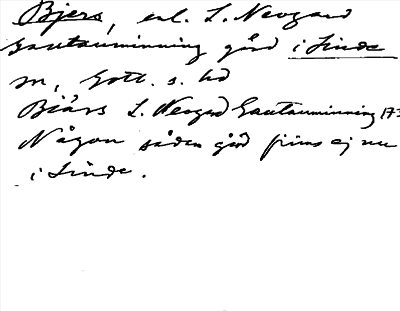 Bjers, enl. L. Neogard
Gautauminning gård i Linde
m, Gotl. s. hd
Biärs L. Neogard Gautauminning 173
Någon sådan gård finns ej nu
i Linde.